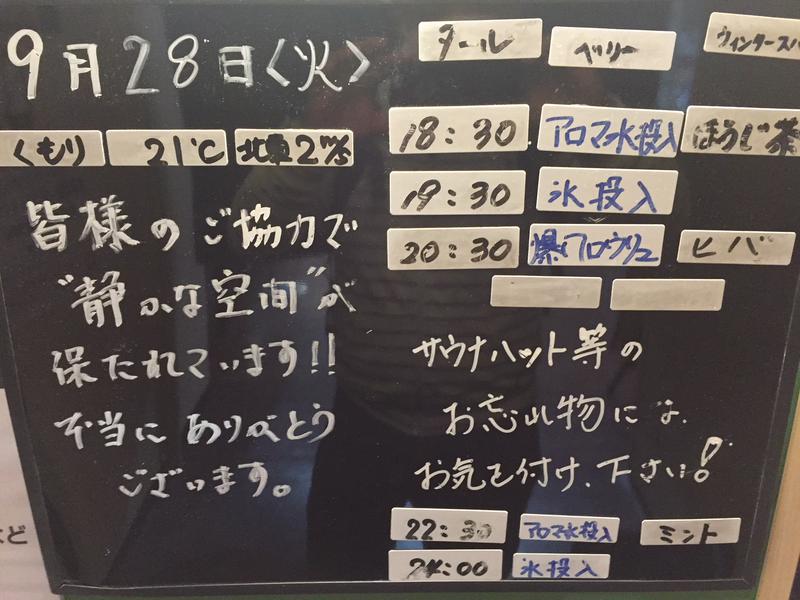 9月28日〈火〉
くもり 21℃ 北東2m/s
皆様のご協力で
"静かな空間"が
保たれています!!
本当にありがとう
ございます。
クール ベリー ウィンタース
18:30 アロマ水投入 ほうじ茶
19:30 氷投入
20:30 爆アロウリュ ヒバ
サウナハット等の
お忘れ物には、
お気を付け、下さい!
22:30 アロマ水投入 ミント
24:00 氷投入
など